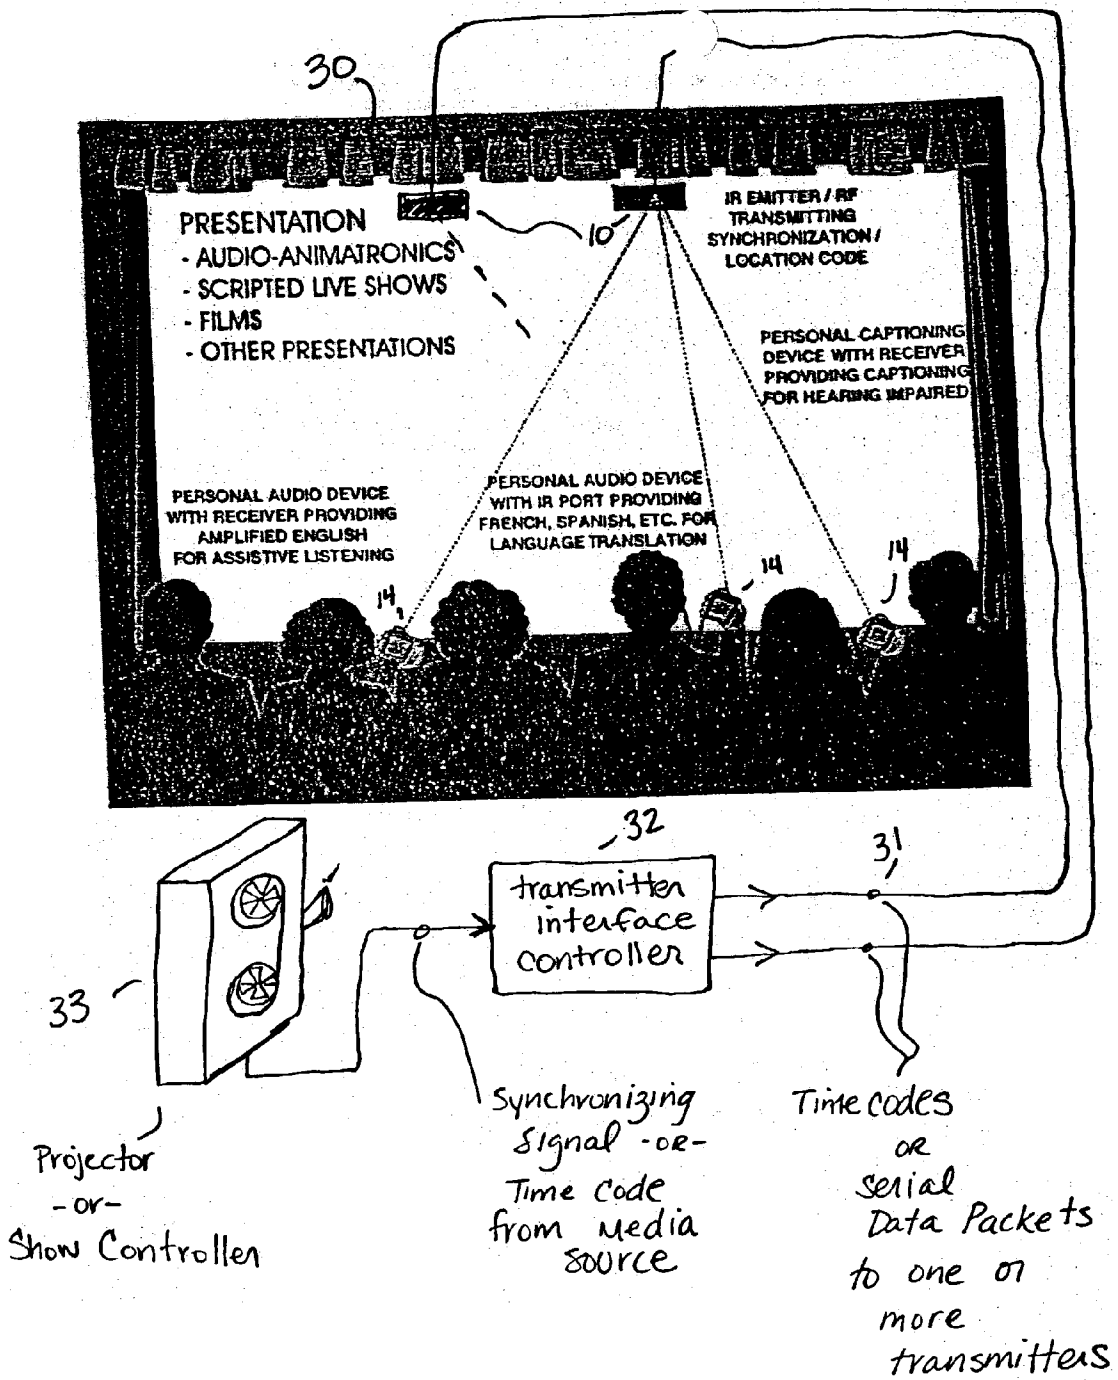 30
PRESENTATION
- AUDIO-ANIMATRONICS
- SCRIPTED LIVE SHOWS
- FILMS
- OTHER PRESENTATIONS
10
IR EMITTER / RF
TRANSMITTING
SYNCHRONIZATION /
LOCATION CODE
PERSONAL CAPTIONING
DEVICE WITH RECEIVER
PROVIDING CAPTIONING
FOR HEARING IMPAIRED
PERSONAL AUDIO DEVICE
WITH RECEIVER PROVIDING
AMPLIFIED ENGLISH
FOR ASSISTIVE LISTENING
PERSONAL AUDIO DEVICE
WITH IR PORT PROVIDING
FRENCH, SPANISH, ETC. FOR
LANGUAGE TRANSLATION
14
14
14
32
31
transmitter
interface
controller
33
Projector
-or-
Show Controller
Synchronizing
Signal -OR-
Time Code
from Media
source
Time codes
OR
serial
Data Packets
to one or
more
transmitters